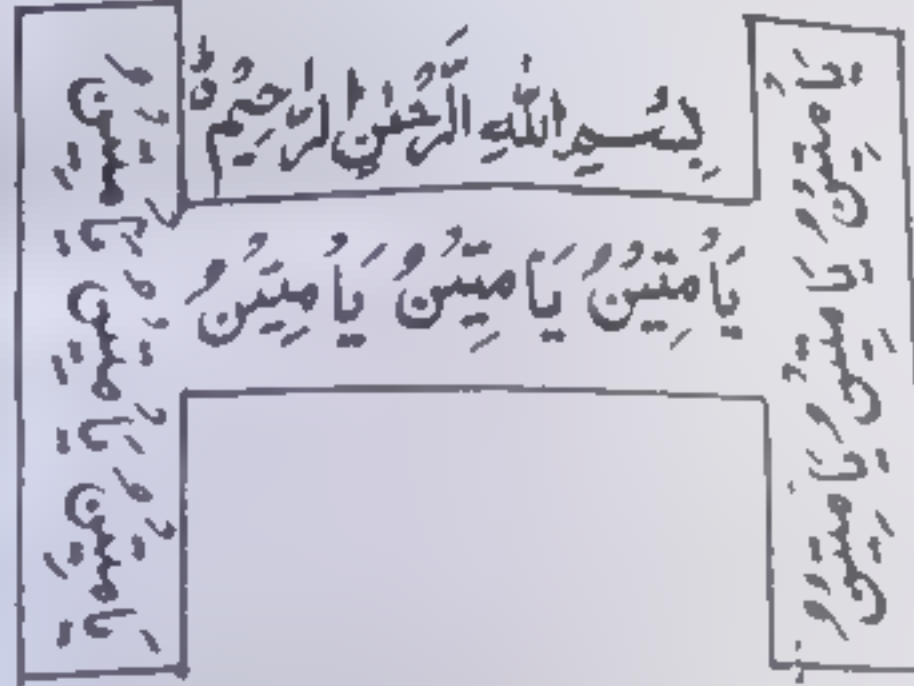 بِسْمِ اللّٰهِ الرَّحْمٰنِ الرَّحِيْمِ
يَا مَتِيْنُ يَا مَتِيْنُ يَا مَتِيْنُ
يَا مَتِيْنُ يَا مَتِيْنُ يَا مَتِيْنُ
يَا مَتِيْنُ يَا مَتِيْنُ يَا مَتِيْنُ